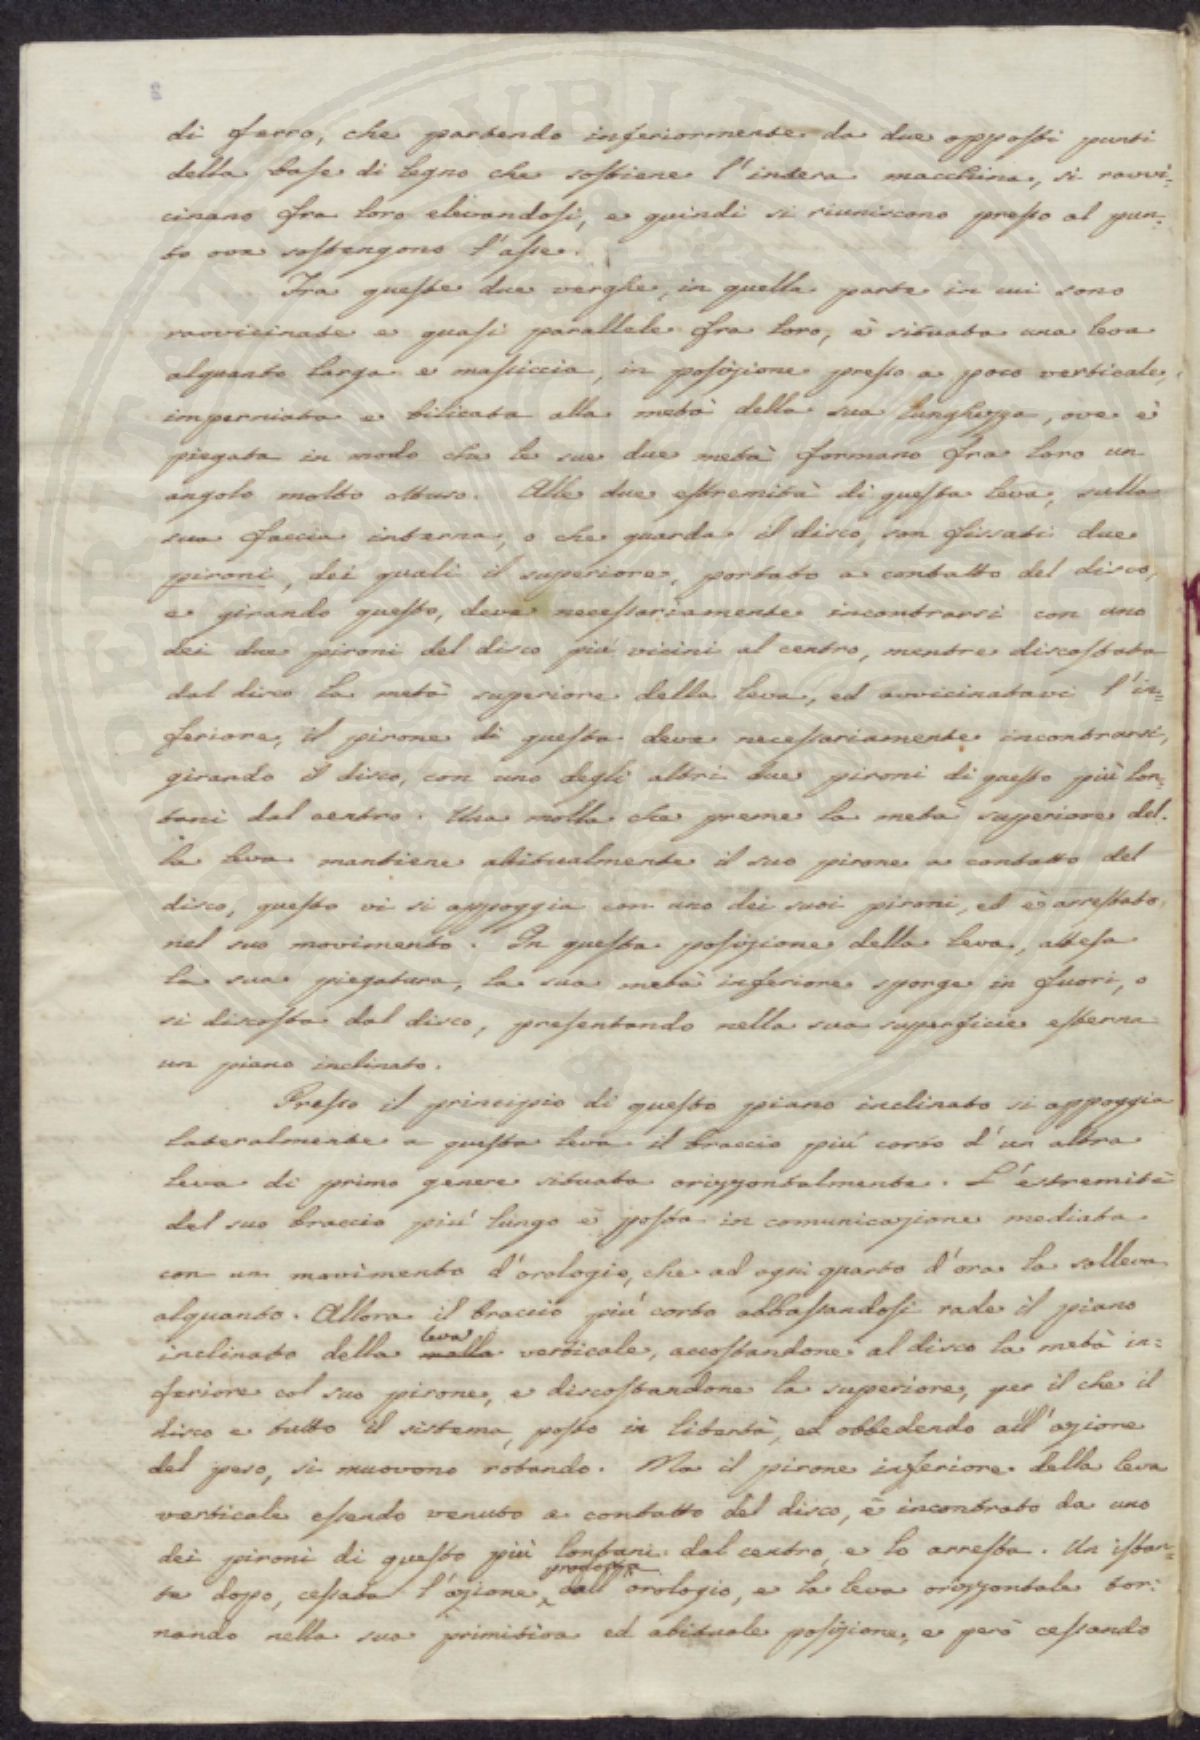 di ferro, che partendo inferiormente da due opposti punti
della base di legno che sostiene l'intera macchina, si ravvi=
cinano fra loro elevandosi, e quindi si riuniscono presso al pun=
to ove sostengono l'asse.
Fra queste due verghe, in quella parte in cui sono
ravvicinate e quasi parallele fra loro, è situata una leva
alquanto larga e massiccia, in posizione presso a poco verticale,
imperniata e bilicata alla metà della sua lunghezza, ove è
piegata in modo che le sue due metà formano fra loro un
angolo molto ottuso. Alle due estremità di questa leva, sulla
sua faccia interna, o che guarda il disco, son fissati due
pironi, dei quali il superiore, portato a contatto del disco,
e girando questo, deve necessariamente incontrarsi con uno
dei due pironi del disco più vicini al centro, mentre discostata
dal disco la metà superiore della leva, ed avvicinatavi l'in=
feriore, il pirone di questa deve necessariamente incontrarsi,
girando il disco, con uno degli altri due pironi di questo più lon=
tani dal centro. Una molla che preme la metà superiore del=
la leva mantiene abitualmente il suo pirone a contatto del
disco, questo vi si appoggia con uno dei suoi pironi, ed è arrestato
nel suo movimento. In questa posizione della leva, attesa
la sua piegatura, la sua metà inferiore sporge in fuori, o
si discosta dal disco, presentando nella sua superficie esterna
un piano inclinato.
Presso il principio di questo piano inclinato si appoggia
lateralmente a questa leva il braccio più corto d'un altra
leva di primo genere situata orizzontalmente. L'estremità
del suo braccio più lungo è posta in comunicazione mediata
con un movimento d'orologio, che ad ogni quarto d'ora la solleva
alquanto. Allora il braccio più corto abbassandosi rade il piano
leva
inclinato della molla verticale, accostandone al disco la metà in=
feriore col suo pirone, e discostandone la superiore, per il che il
disco e tutto il sistema, posto in libertà, ed obbedendo all'azione
del peso, si muovono rotando. Ma il pirone inferiore della leva
verticale essendo venuto a contatto del disco, è incontrato da uno
dei pironi di questo più lontani dal centro, e lo arresta. Un istan=
prodotta
te dopo, cessata l'azione dall'orologio, e la leva orizzontale tor=
nando nella sua primitiva ed abituale posizione, e però cessando